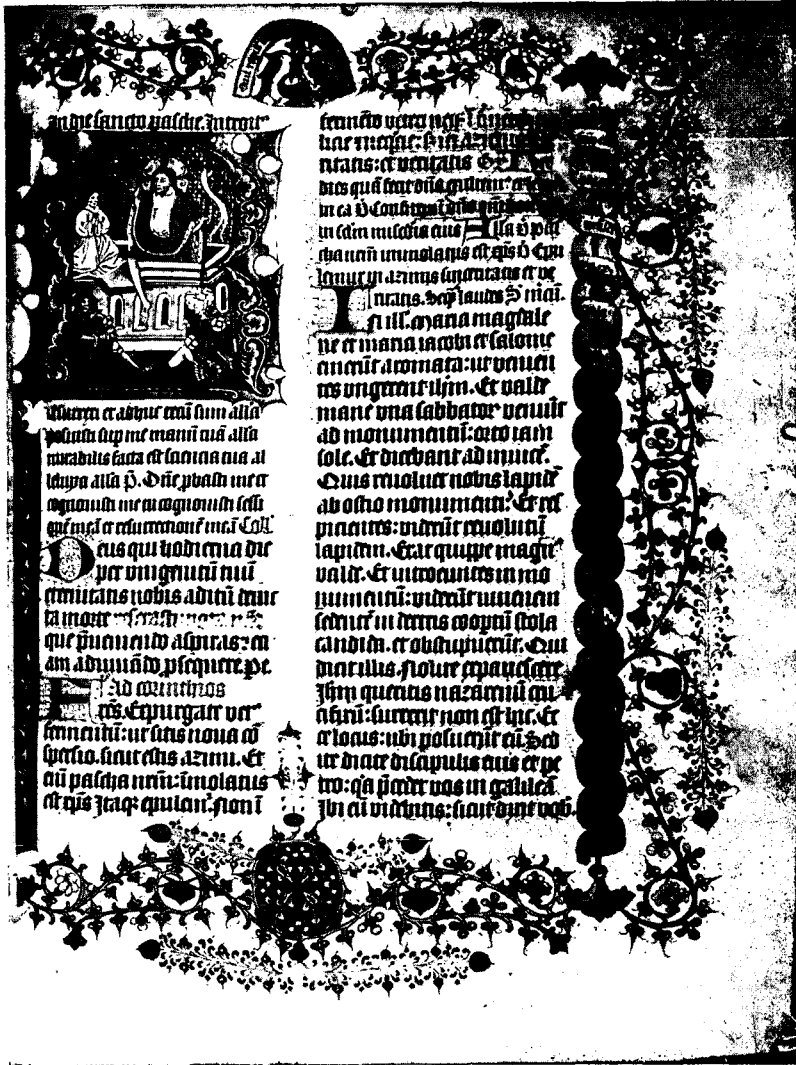 In die sancto pasche Introit'
Resurrexi et adhuc tecū sum alla
posuisti sup me manū tuā alla
mirabilis facta est sciencia tua al
leluya alla p̄. Dn̄e p̄basti me et
cognouisti me tu cognouisti sessi
onē meā et resurrectionē meā Coll'
Deus qui hodierna die
per vnigenitū tuū
eternitatis nobis aditū deuic
ta morte reserasti
que p̄ueniendo aspiras: eti
am adiuuādo p̄sequere. Pe.
Ad corinthios
Fr̄es. Expurgate vet'
fermentū: ut sitis noua cō
spersio. sicut estis azimi. Et
eni pascha nr̄m: īmolatus
est xp̄s Itaq; epulem'. Non ī
fermēto veteri neq;
licie et nequicie: Sz ī azimis
ritatis: et veritatis
dies quā fecit dn̄s exultem' et
in ea v̄ Confitemini dn̄o qm̄
in sc̄lm mīsc̄dia eius Alla v̄ Pas
cha nr̄m immolatus est xp̄s v̄ Epu
lemur in azimis sinceritatis et ve
ritatis. Seq̄ laudes S' marc̄.
In ill'. Maria magdale
ne et maria iacobi et salome
emerūt aromata: ut venien
tes vngerent ih̄m. Et valde
mane vna sabbator̄ veniūt
ad monumentū: orto iam
sole. Et dicebant ad inuicē.
Quis reuoluet nobis lapidē
ab ostio monumenti? Et res
picientes: viderūt reuolutū
lapidem. Erat quippe magn'
valde. Et introeuntes in mo
numentū: viderūt iuuenem
sedentē in dextris coopertū stola
candida. et obstupuerūt. Qui
dicit illis. Nolite expauescere
Ihm queritis nazarenū cru
cifixū: surrexit non est hic. Ec
ce locus: ubi posuerūt eū. Sed
ite dicite discipulis eius et pe
tro: q̄a p̄cedet vos in galileā
Ibi eū videbitis: sicut dixit vob'.